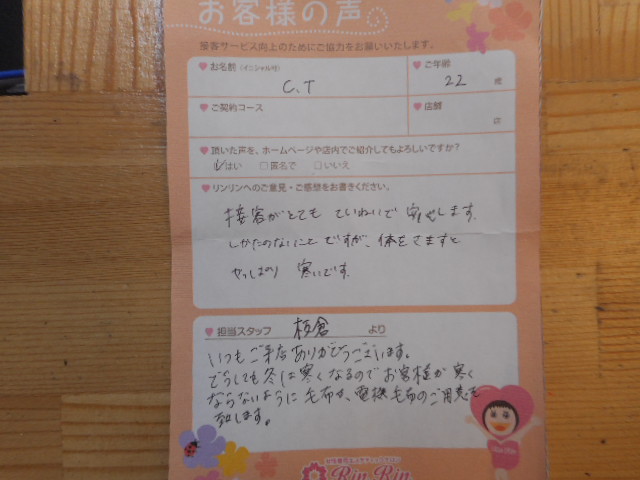 お客様の声
接客サービス向上のためにご協力をお願いいたします。
お名前（イニシャル可）
C.T
ご年齢
22 歳
ご契約コース
店舗
店
頂いた声を、ホームページや店内でご紹介してもよろしいですか？
はい □匿名で □いいえ
リンリンへのご意見・ご感想をお書きください。
接客がとても ていねいで 安心します。
しかたのないことですが、体をさますと
やっぱり 寒いです。
担当スタッフ 板倉 より
いつもご来店ありがとうございます。
どうしても冬は寒くなるのでお客様が寒く
ならないように毛布や、電機毛布のご用意を
致します。
Rin Rin